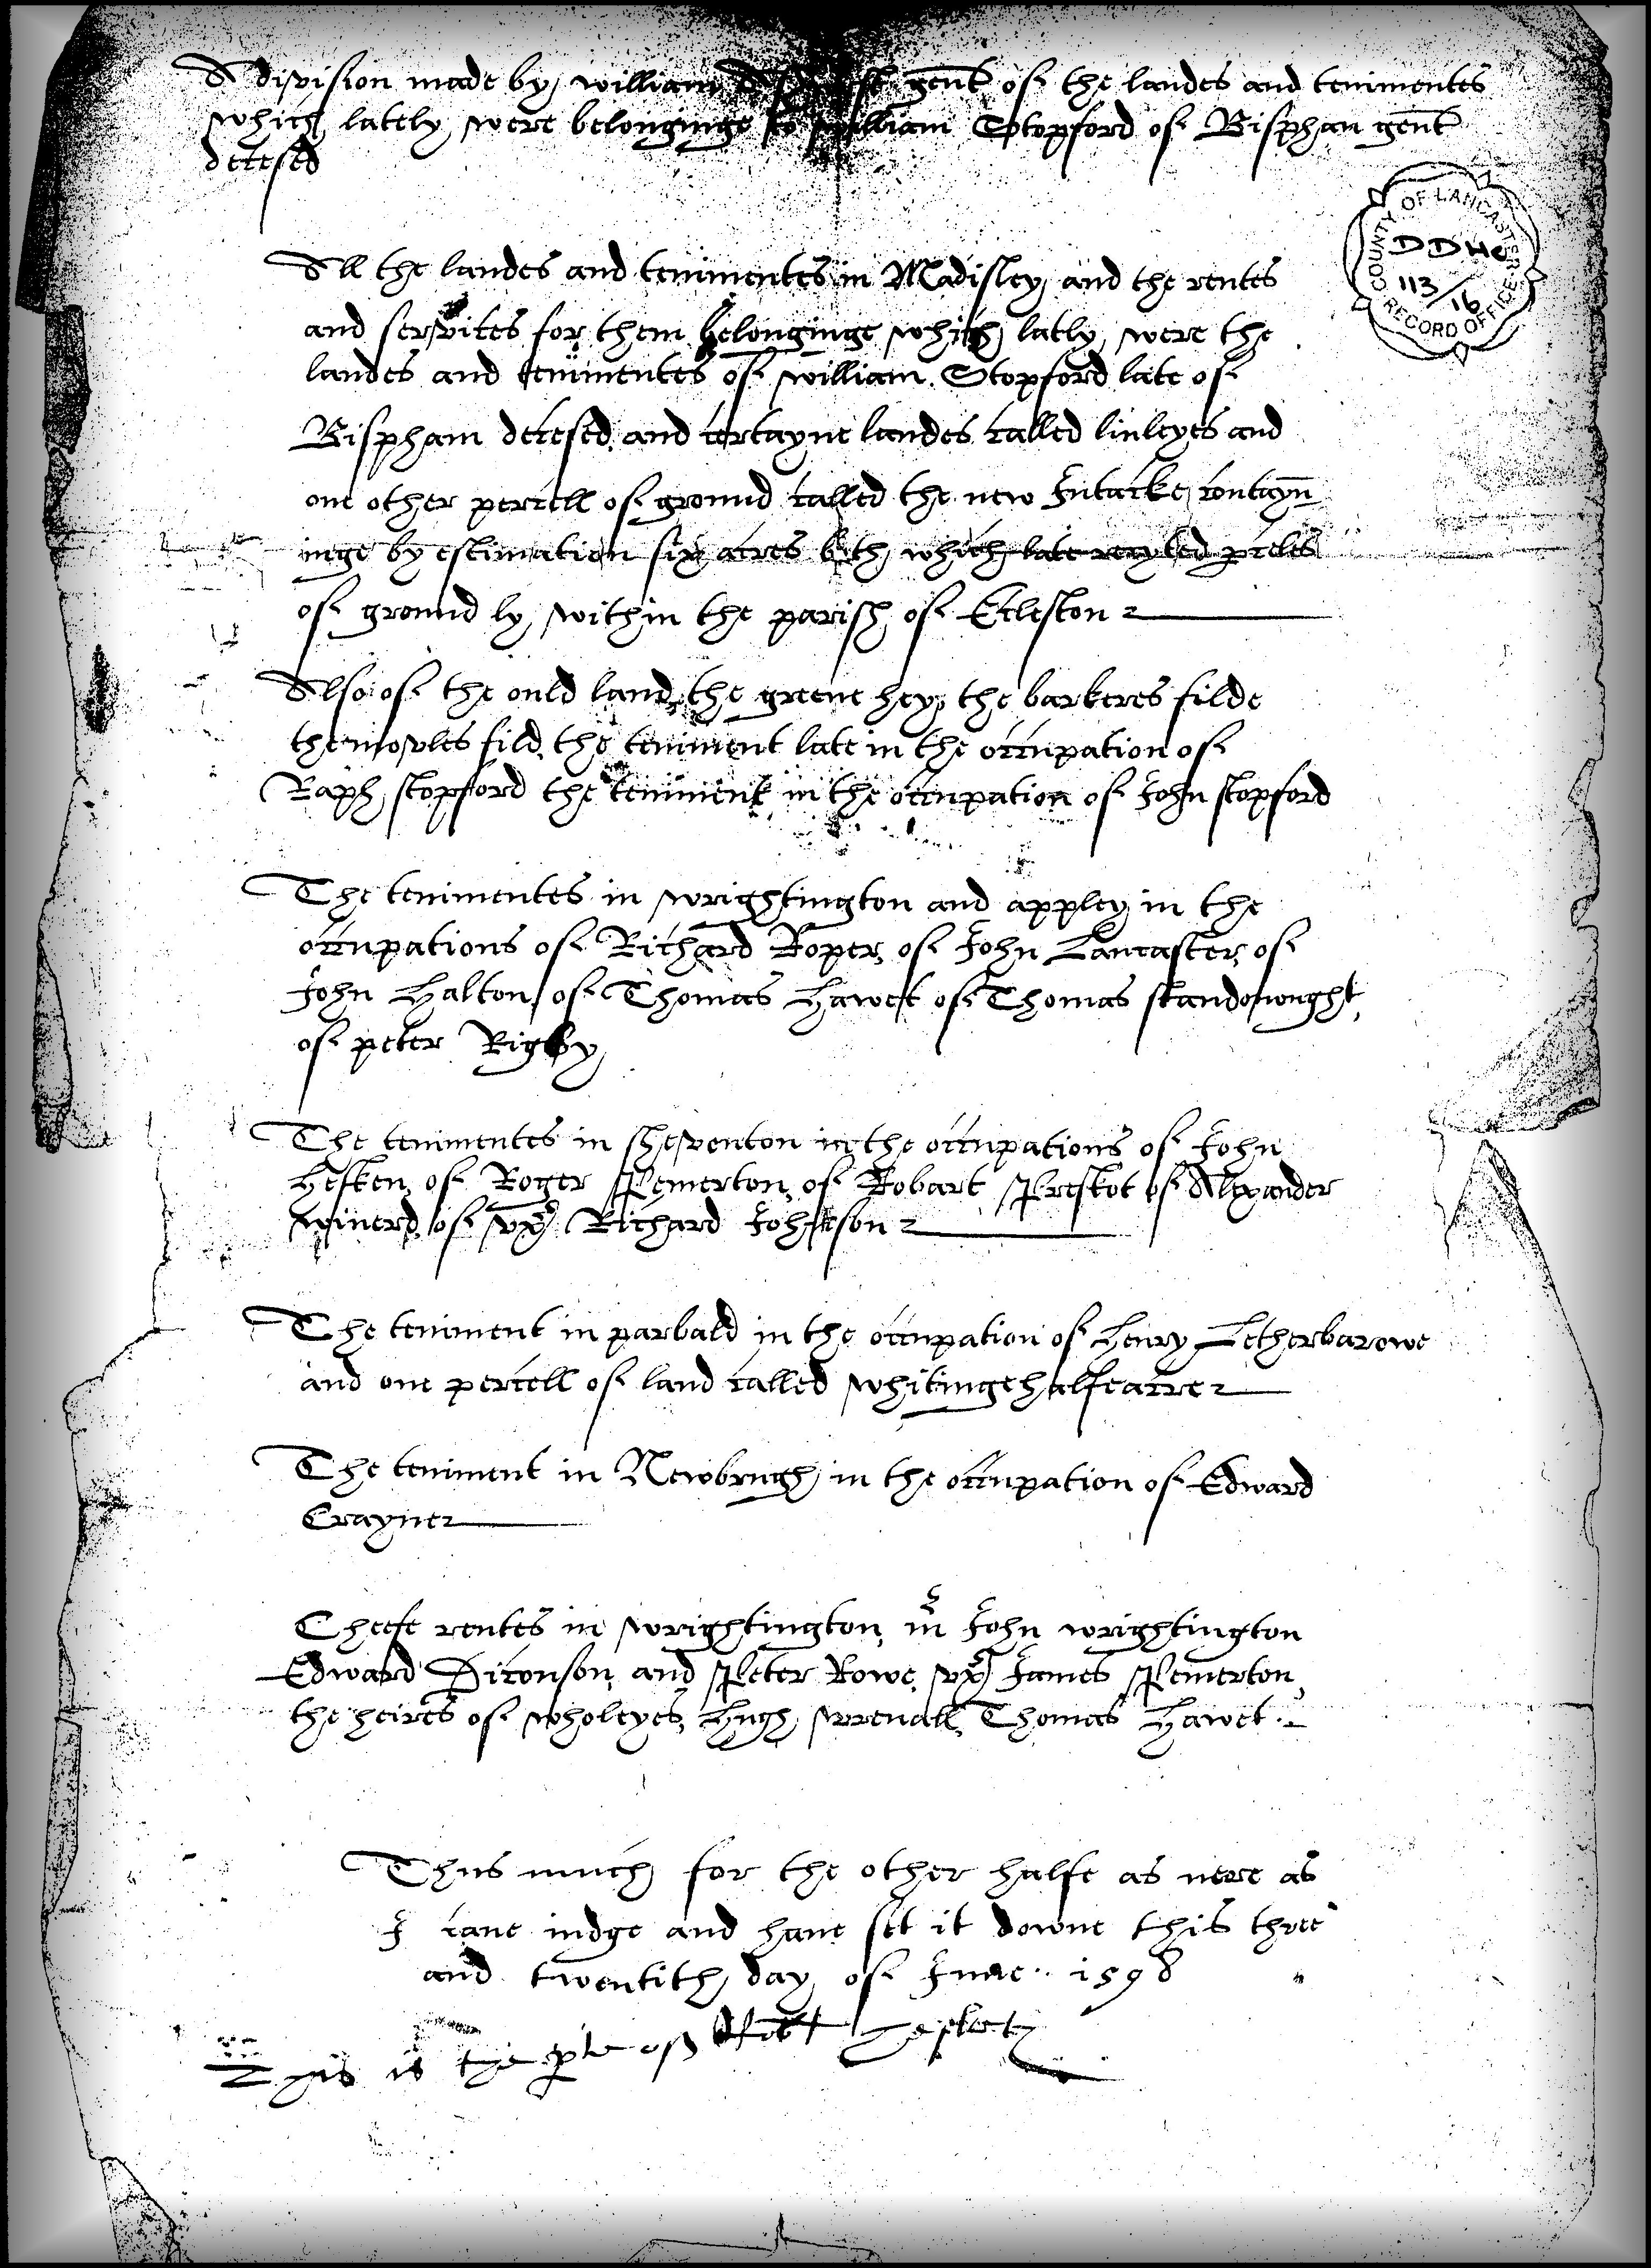 A division made by william gent of the landes and tenimentes
which lately were belonginge to william Stopford of Bisphan gent
decesed
COUNTY OF LANCASTER
DDHe
113/16
RECORD OFFICE
All the landes and tenimentes in Madisley and the rentes
and services for them belonginge which latly were the
landes and tenimentes of william Stopford late of
Bispham decesed and certayne landes called linleyes and
one other percell of ground called the new Intacke contayn
inge by estimation six acres both which late recyted pceles
of ground ly within the parish of Eccleston
Also of the ould land the greene hey the barkeres filde
the fild the teniment late in the occupation of
Raph stopford the teniment in the occupation of John stopford
The tenimentes in wrightington and appley in the
occupations of Richard Roper of John Lancaster of
John Halton of Thomas Hawet of Thomas standonought
of peter Rigby
The tenimentes in sheventon in the occupations of John
Hesken of Roger Pemerton of Robart Preskot of Alexander
winerd of vx Richard Johnson
The teniment in parbald in the occupation of Henry Letherbarowe
and one percell of land called whitinge halfe acre
The teniment in Newbrugh in the occupation of Edward
Crayne
Cheefe rentes in wrightington mr John wrightington
Edward Diconson and Peter Rowe vx James Pemerton
the heires of wholeyes Hugh wrenall Thomas Hawet
Thus much for the other halfe as nere as
I cane iudge and have set it downe this three
and twentith day of June 1598
This is the pte of Robt